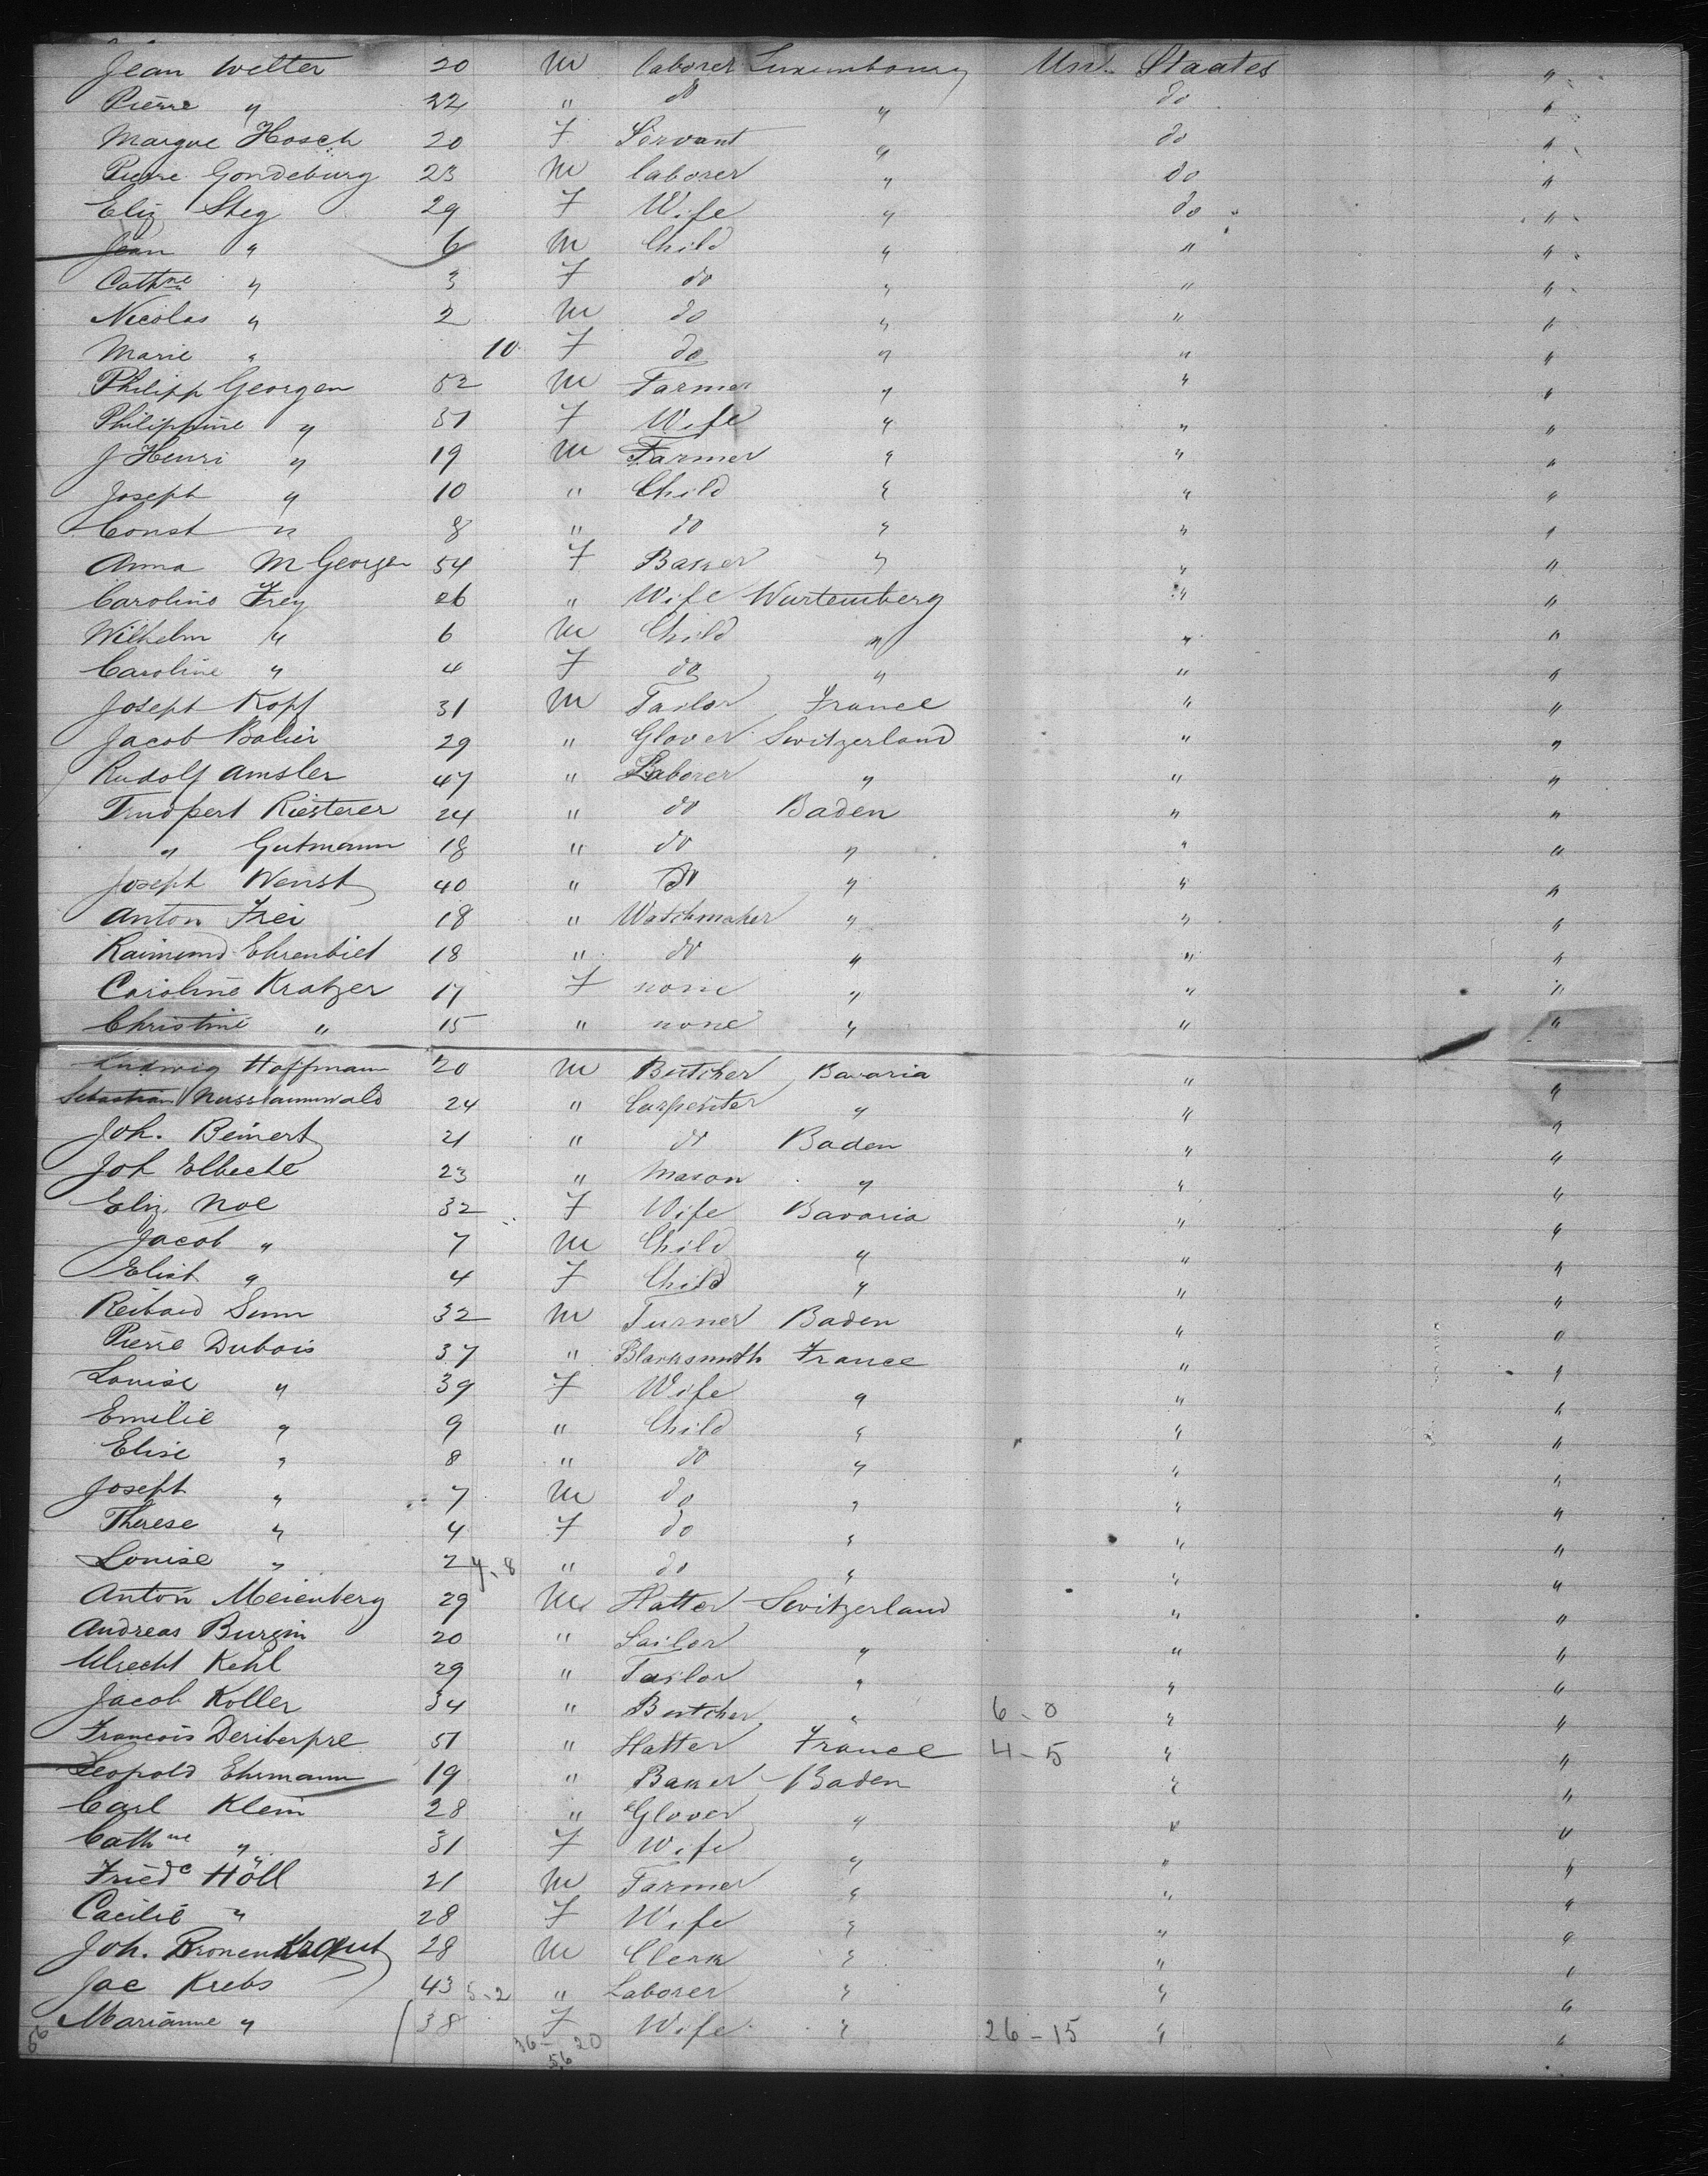 Jean Welter 20 M laborer Luxembourg Un. Staates "
Pierre " 22 " do " do "
Margue Hosch 20 F Servant " do "
Pierre Gondeburg 23 M laborer " do "
Eliz Steg 29 F Wife " do "
Jean " 6 M Child " " "
Cathne " 3 F do " " "
Nicolas " 2 M do " " "
Marie " 10 F do " " "
Philipp Georgen 52 M Farmer " " "
Philippine " 51 F Wife " " "
J Henri " 19 M Farmer " " "
Joseph " 10 " Child " " "
Const " 8 " do " " "
Anna M Georgen 54 F Baker " " "
Caroline Frey 26 " Wife Wurtemberg " "
Wilhelm " 6 M Child " " "
Caroline " 4 F do " " "
Joseph Kopf 31 M Tailor France " "
Jacob 29 " Glover Switzerland " "
Rudolf Amsler 47 " Laborer " " "
Trudpert Riesterer 24 " do Baden " "
" Gutmann 18 " do " " "
Joseph 40 " do " " "
Anton Frei 18 " Watchmaker " " "
Raimund 18 " do " " "
Caroline Kratzer 17 F none " " "
Christine " 15 " none " " "
Ludwig Hoffmann 20 M Butcher Bavaria " "
Sebastian 24 " Carpenter " " "
Joh. Beinert 21 " do Baden " "
Joh 23 " Mason " " "
Eliz Noe 32 F Wife Bavaria " "
Jacob " 7 M Child " " "
Elist " 4 F Child " " "
32 M Turner Baden " "
Pierre Dubois 37 " Blacksmith France " "
Louise " 39 F Wife " " "
Emilie " 9 " Child " " "
Elise " 8 " do " " "
Joseph " 7 M do " " "
Therese " 4 F do " " "
Louise " 2 4-8 " do " " "
Anton Meienberg 29 M Hatter Switzerland " "
Andreas Burgin 20 " Sailor " " "
Ulrecht Kehl 29 " Tailor " " "
Jacob Koller 34 " Butcher " 6-0 " "
Francois 51 " Hatter France 4-5 " "
Leopold Ehrmann 19 " Baker Baden " "
Carl Klein 28 " Glover " " "
Cathne " 31 F Wife " " "
Friedc Höll 21 M Farmer " " "
Cacilie " 28 F Wife " " "
Joh. Kronenkraut 28 M Clerk " " "
Jac Krebs 43 5-2 " Laborer " " "
Marianne " 38 F Wife " 26-15 " "
56 36-20
56